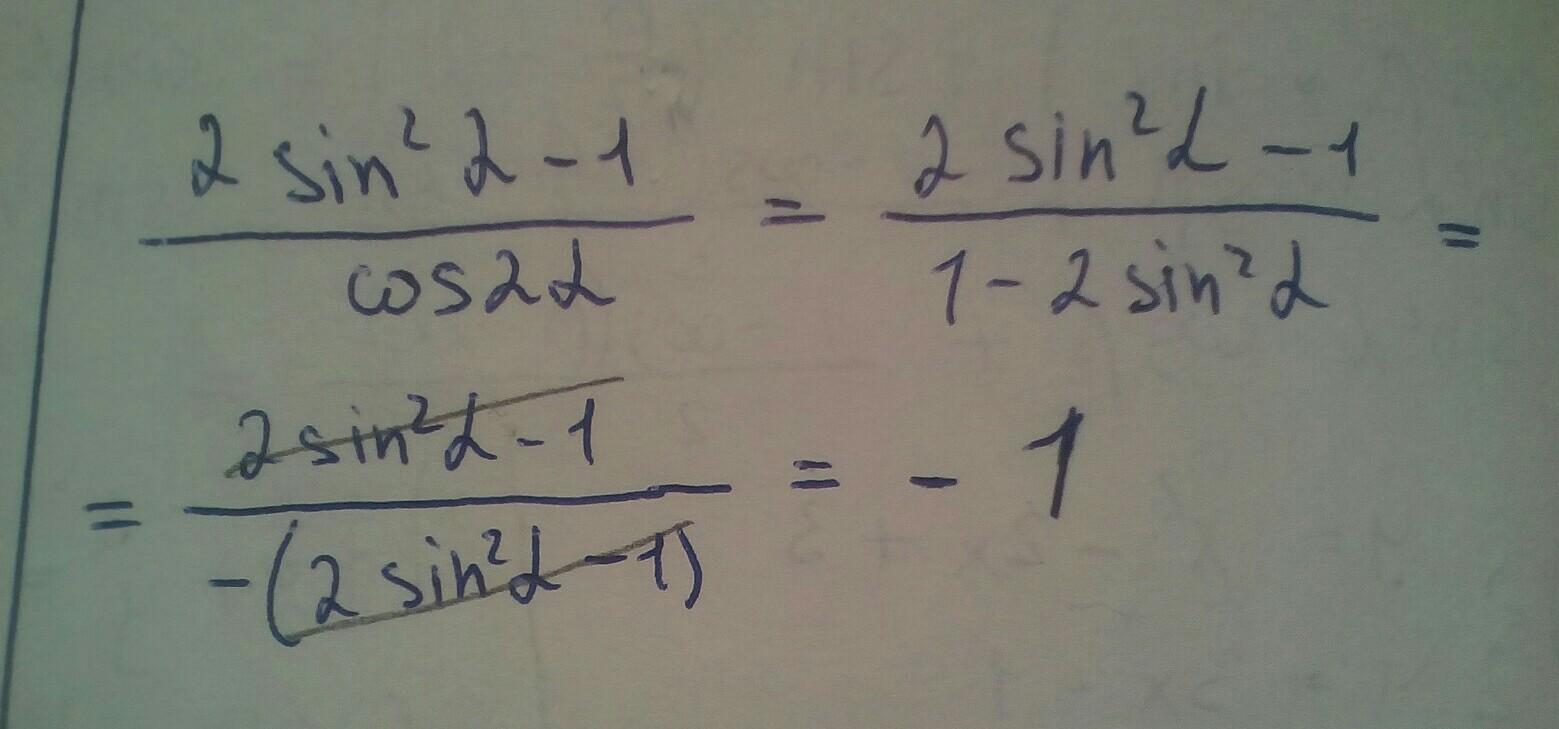 (2 sin² α - 1) / (cos 2α) = (2 sin² α - 1) / (1 - 2 sin² α) =
= (2 sin² α - 1) / (-(2 sin² α - 1)) = - 1